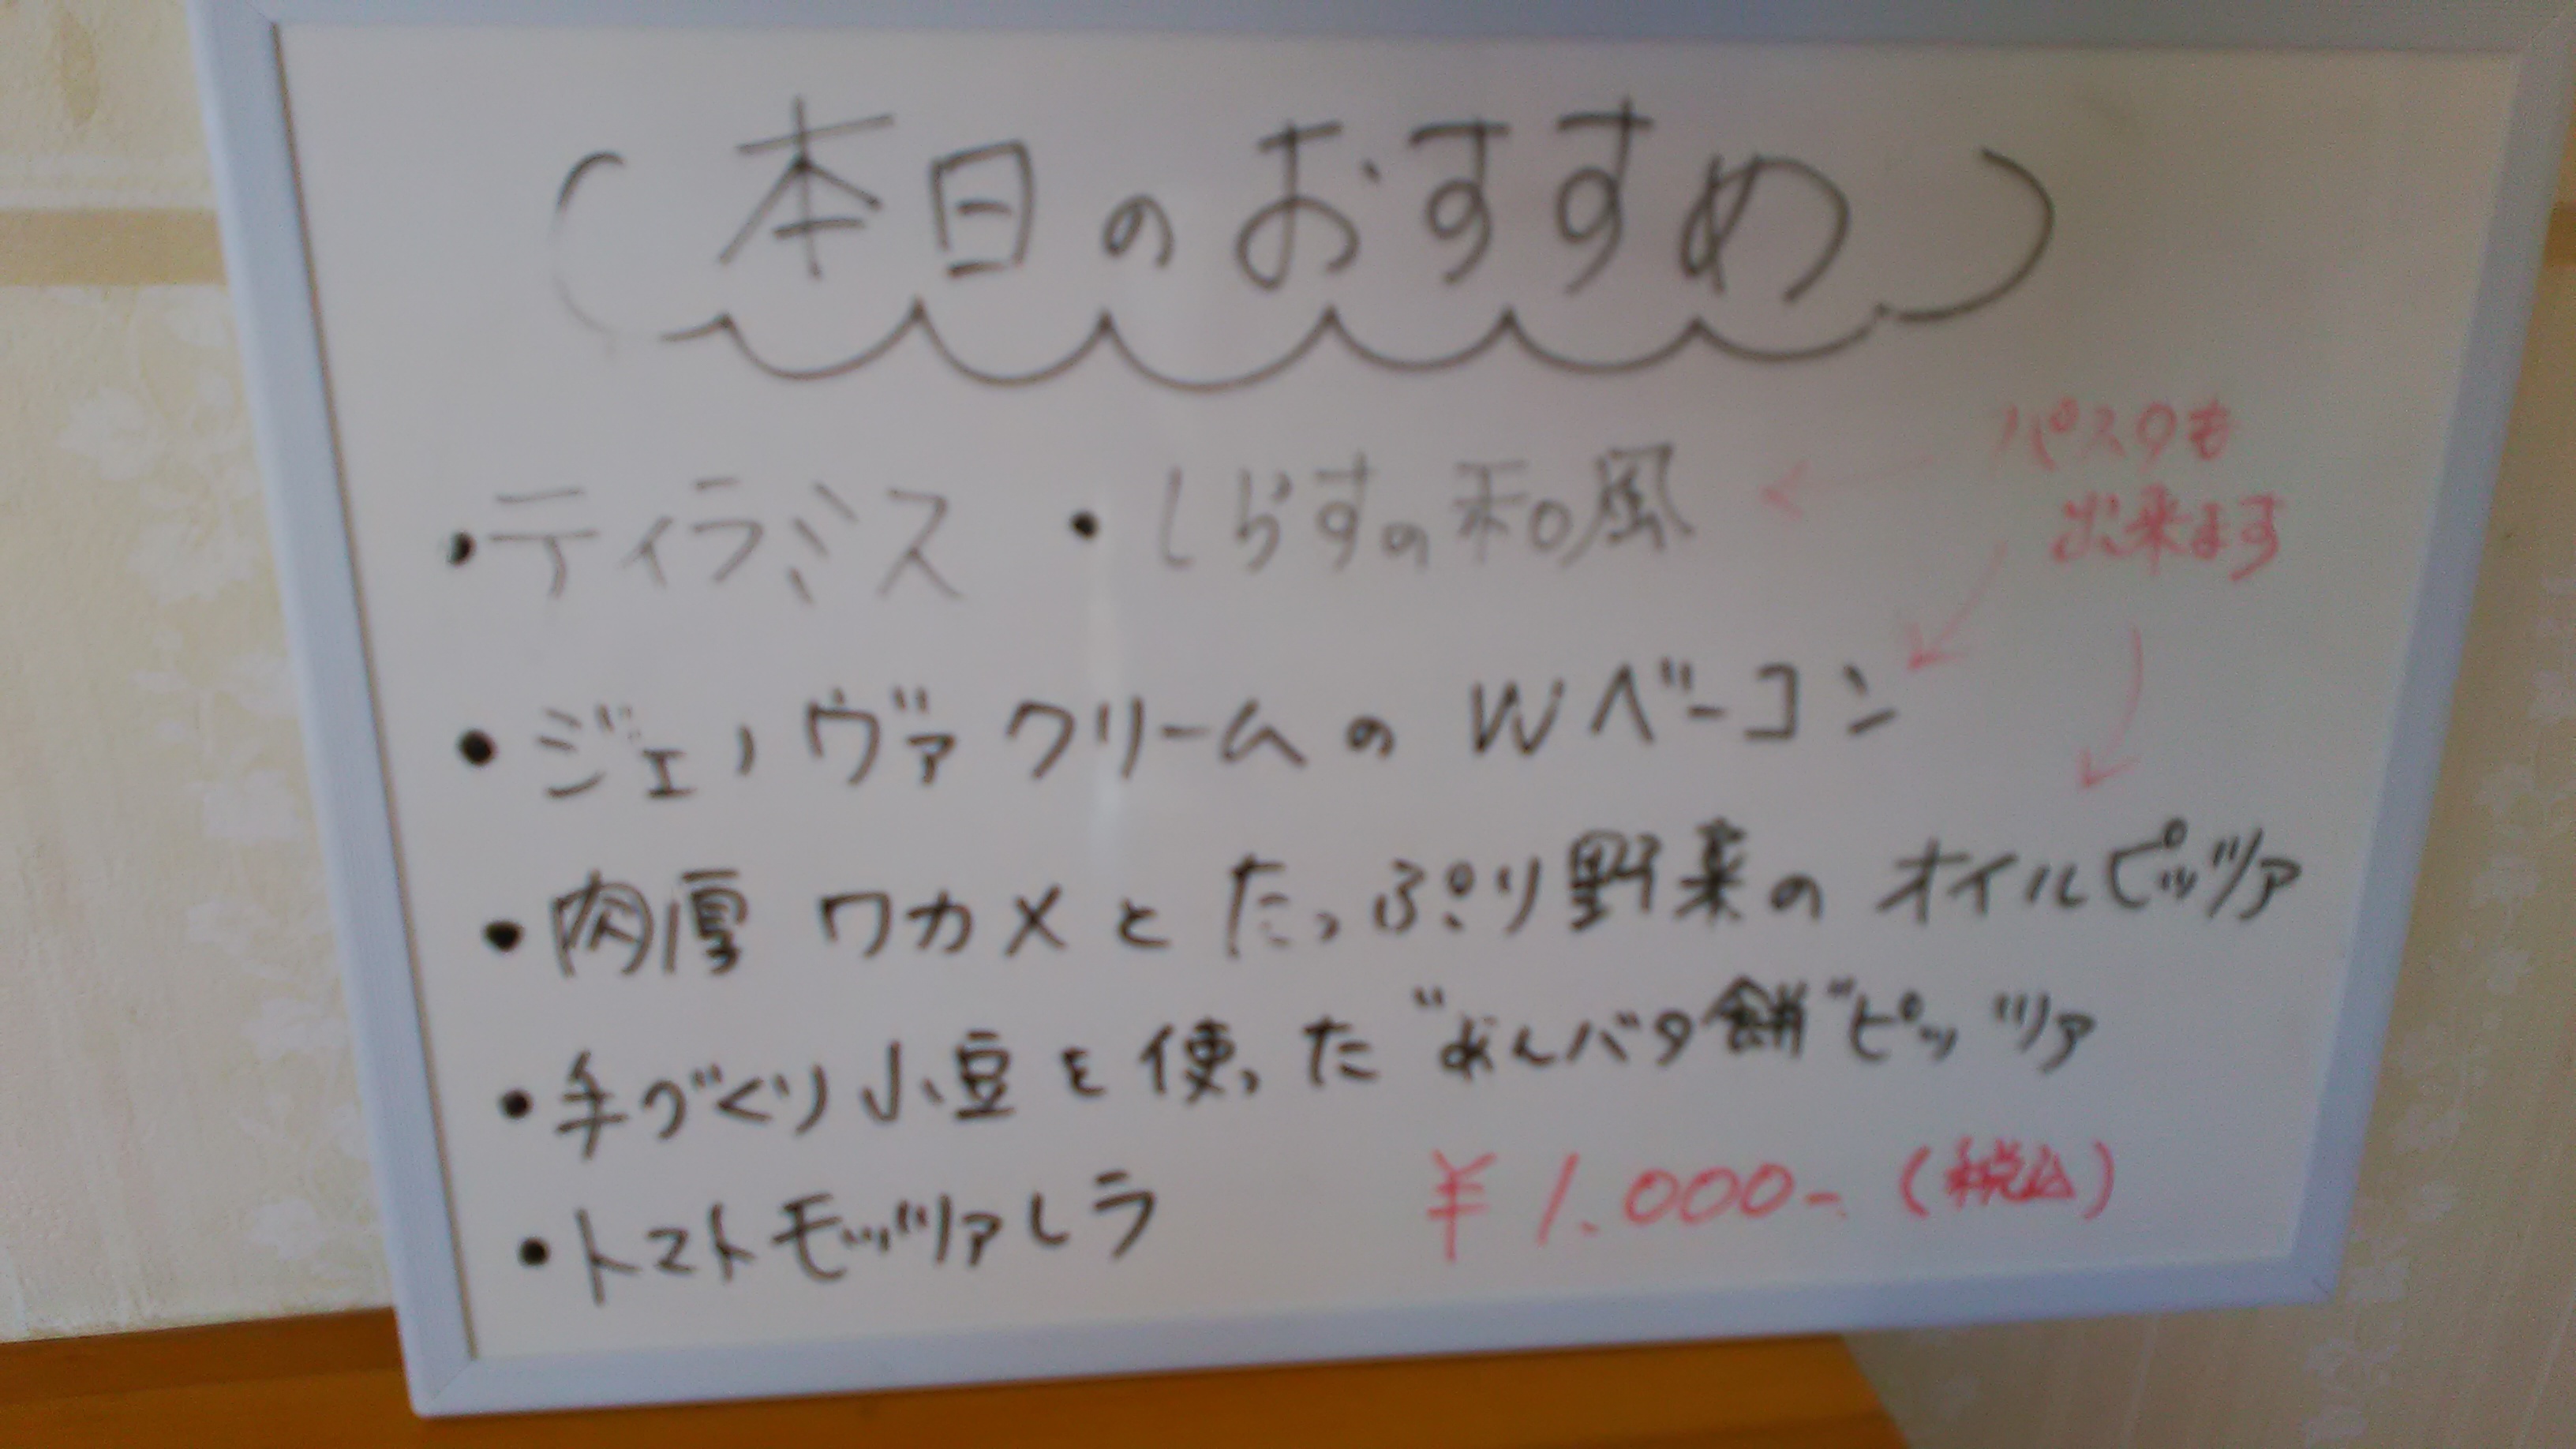 本日のおすすめ
・ティラミス ・しらすの和風
パスタも
出来ます
・ジェノヴァクリームのWベーコン
・肉厚ワカメとたっぷり野菜のオイルピッツァ
・手づくり小豆を使った"あんバタ餅"ピッツァ
・トマトモッツァレラ ¥1.000-(税込)